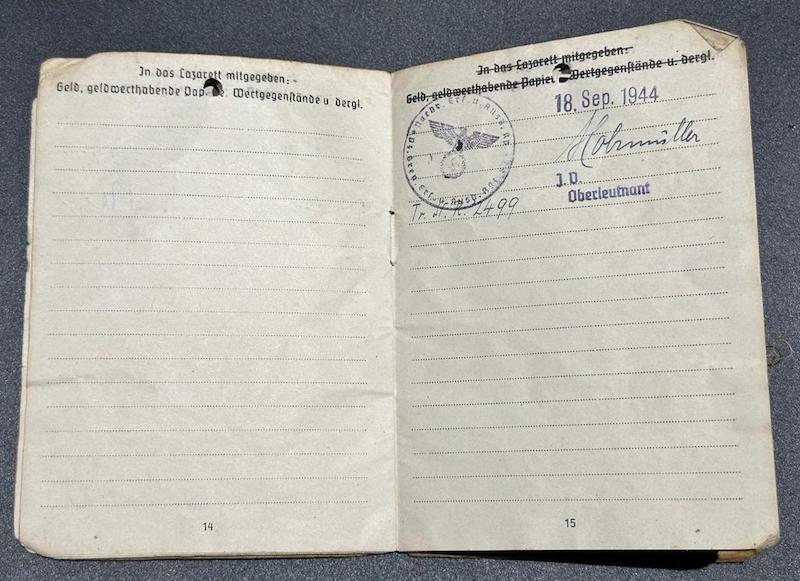 In das Lazarett mitgegeben:
Geld, geldwerthabende Pap e, Wertgegenstände u dergl.
14
In das Lazarett mitgegeben:
Geld, geldwerthabende Papier Wertgegenstände u. dergl.
18. Sep. 1944
J.D.
Oberleutnant
Tr. St. R. 2499
15